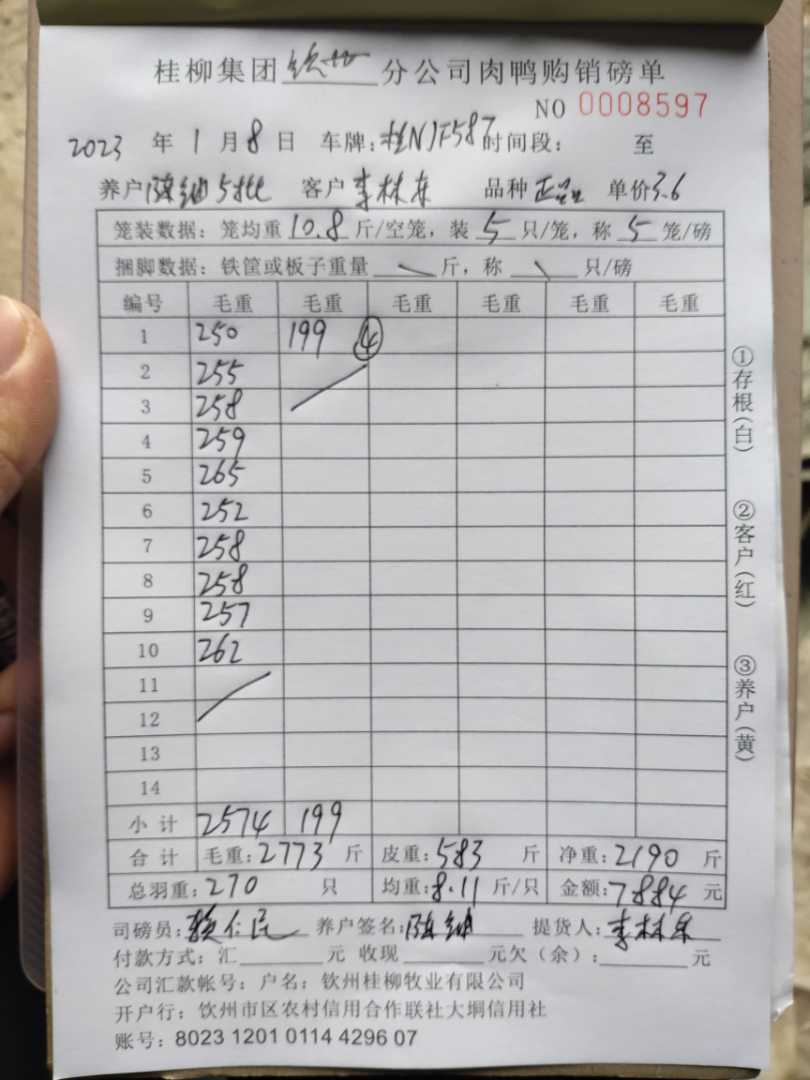 桂柳集团钦州分公司肉鸭购销磅单
NO 0008597
2023 年 1 月 8 日 车牌:桂NJF587 时间段: 至
养户 陈 5批 客户 李林东 品种 正品 单价 3.6
笼装数据: 笼均重 10.8 斤/空笼, 装 5 只/笼, 称 5 笼/磅
捆脚数据: 铁筐或板子重量 斤, 称 只/磅
编号 毛重 毛重 毛重 毛重 毛重 毛重
1 250 199 ④
2 255
3 258
4 259
5 265
6 252
7 258
8 258
9 257
10 262
11
12
13
14
小计 2574 199
合计 毛重:2773 斤 皮重:583 斤 净重:2190 斤
总羽重:270 只 均重:8.11 斤/只 金额:7884 元
司磅员: 仁民 养户签名:陈 提货人:李林东
付款方式: 汇 元 收现 元欠(余): 元
公司汇款帐号: 户名: 钦州桂柳牧业有限公司
开户行: 钦州市区农村信用合作联社大垌信用社
账号: 8023 1201 0114 4296 07
①存根(白)
②客户(红)
③养户(黄)